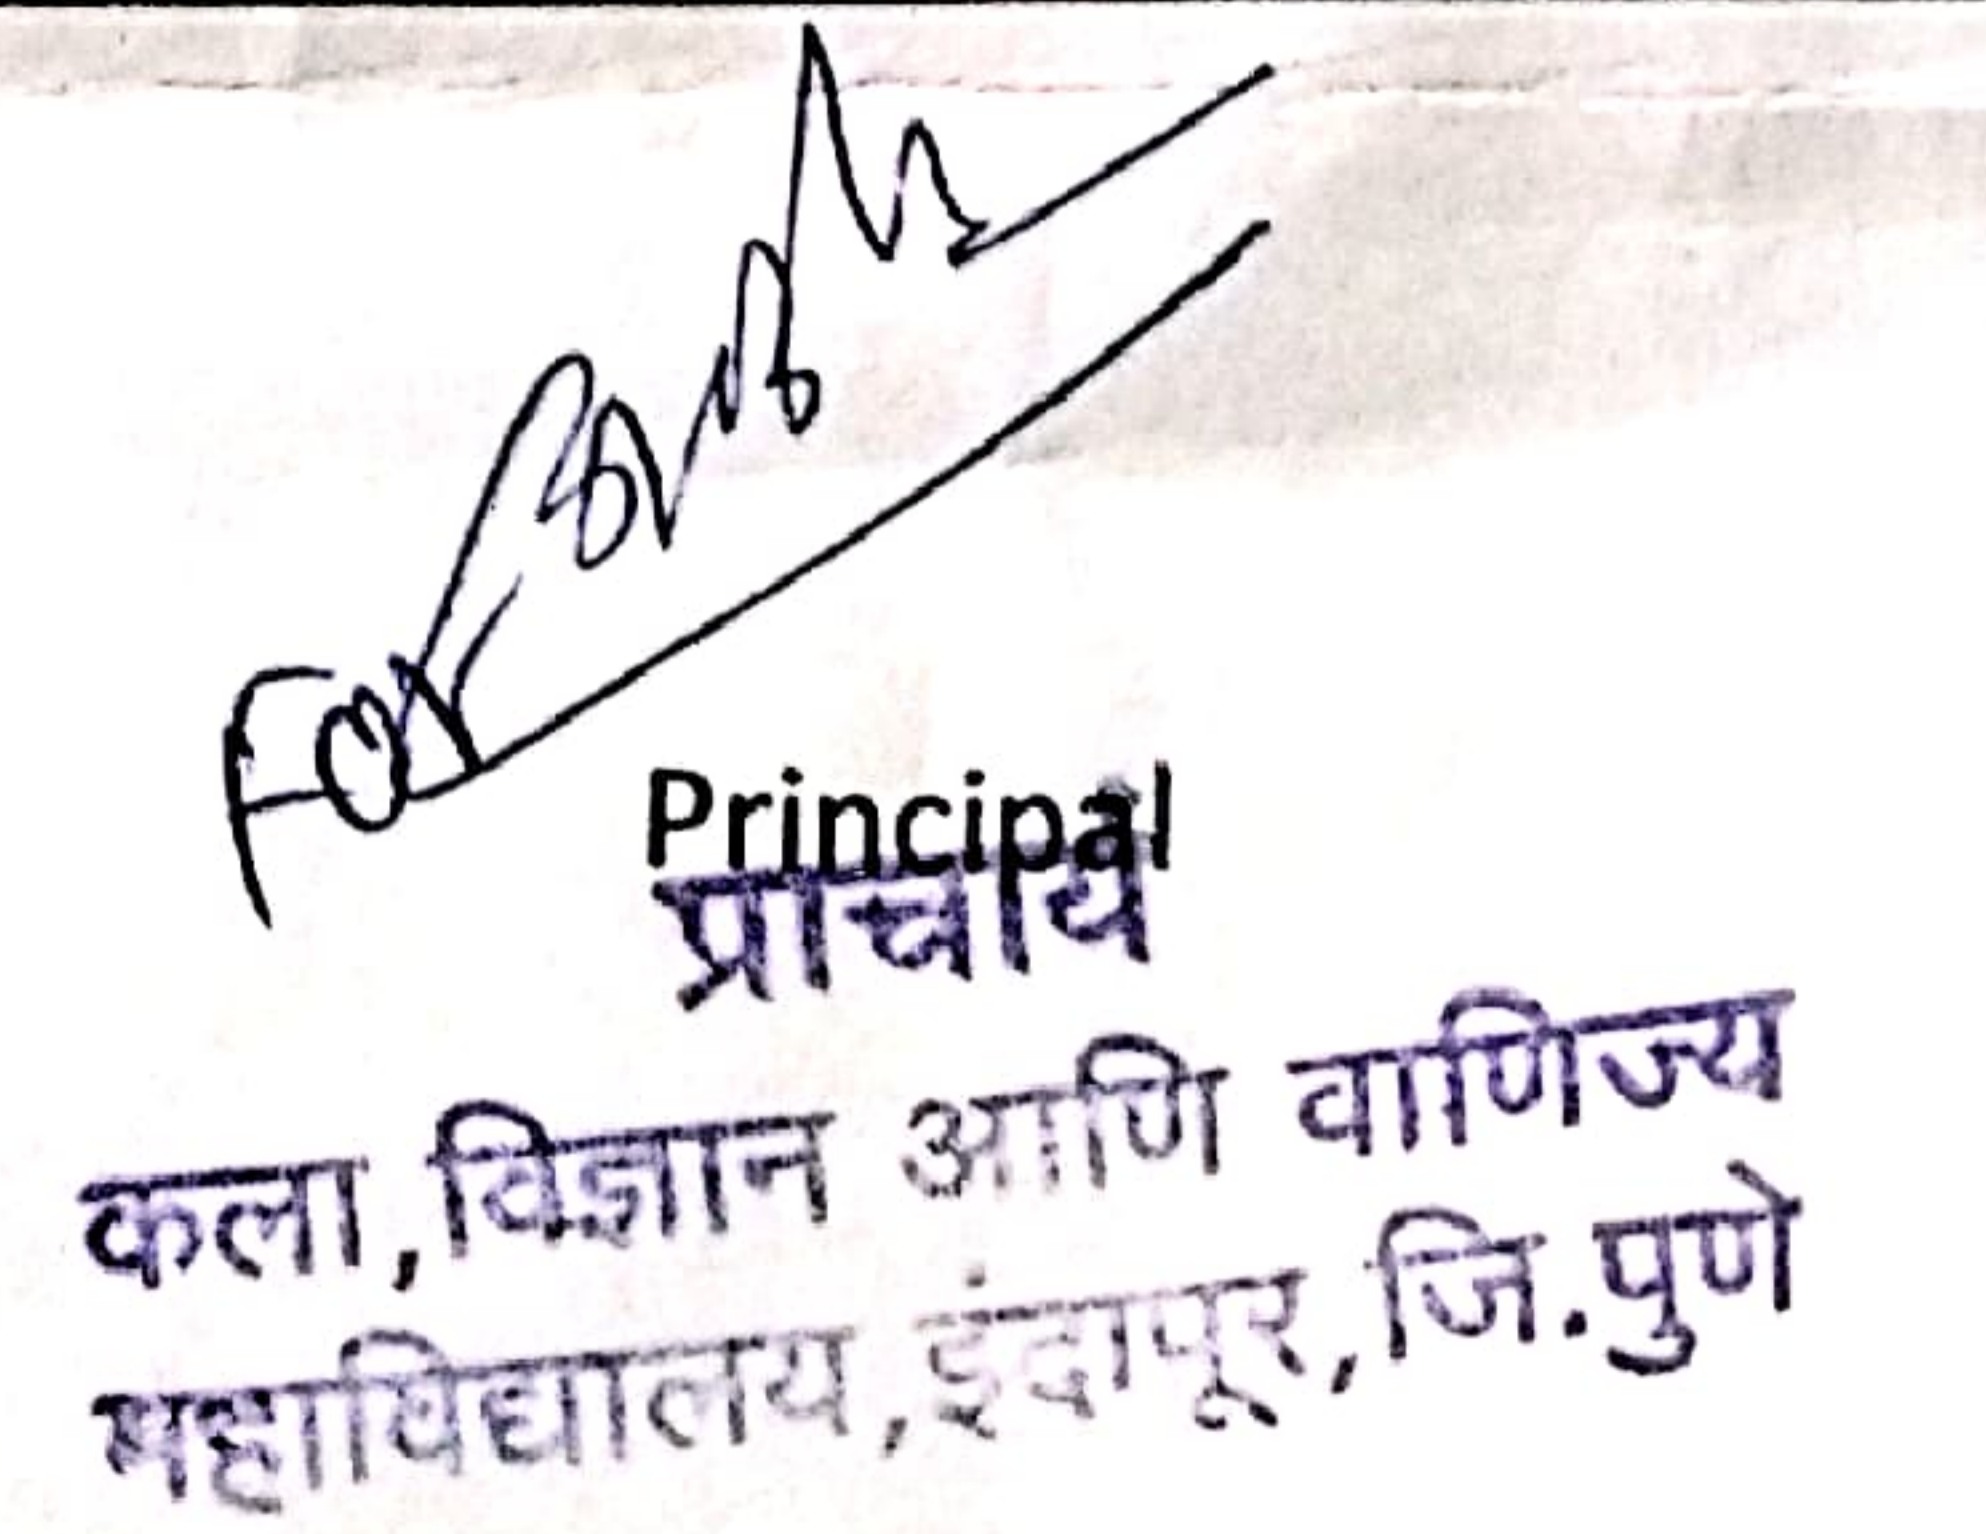 For
Principal
प्राचार्य
कला,विज्ञान आणि वाणिज्य
महाविद्यालय,इंदापूर,जि.पुणे